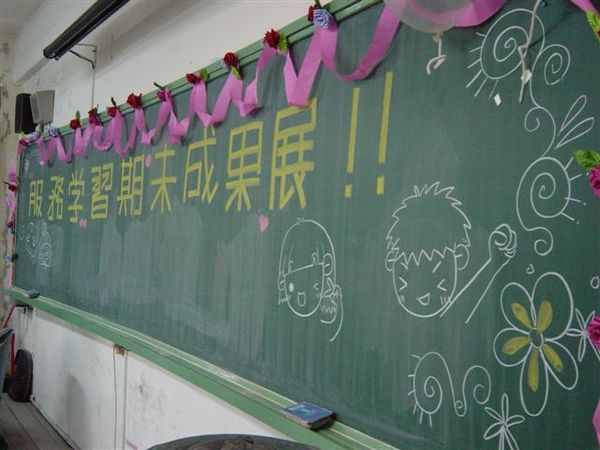 服務學習期末成果展!!